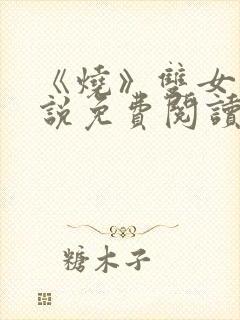 《燒》雙女
說免費閱讀
糖木子